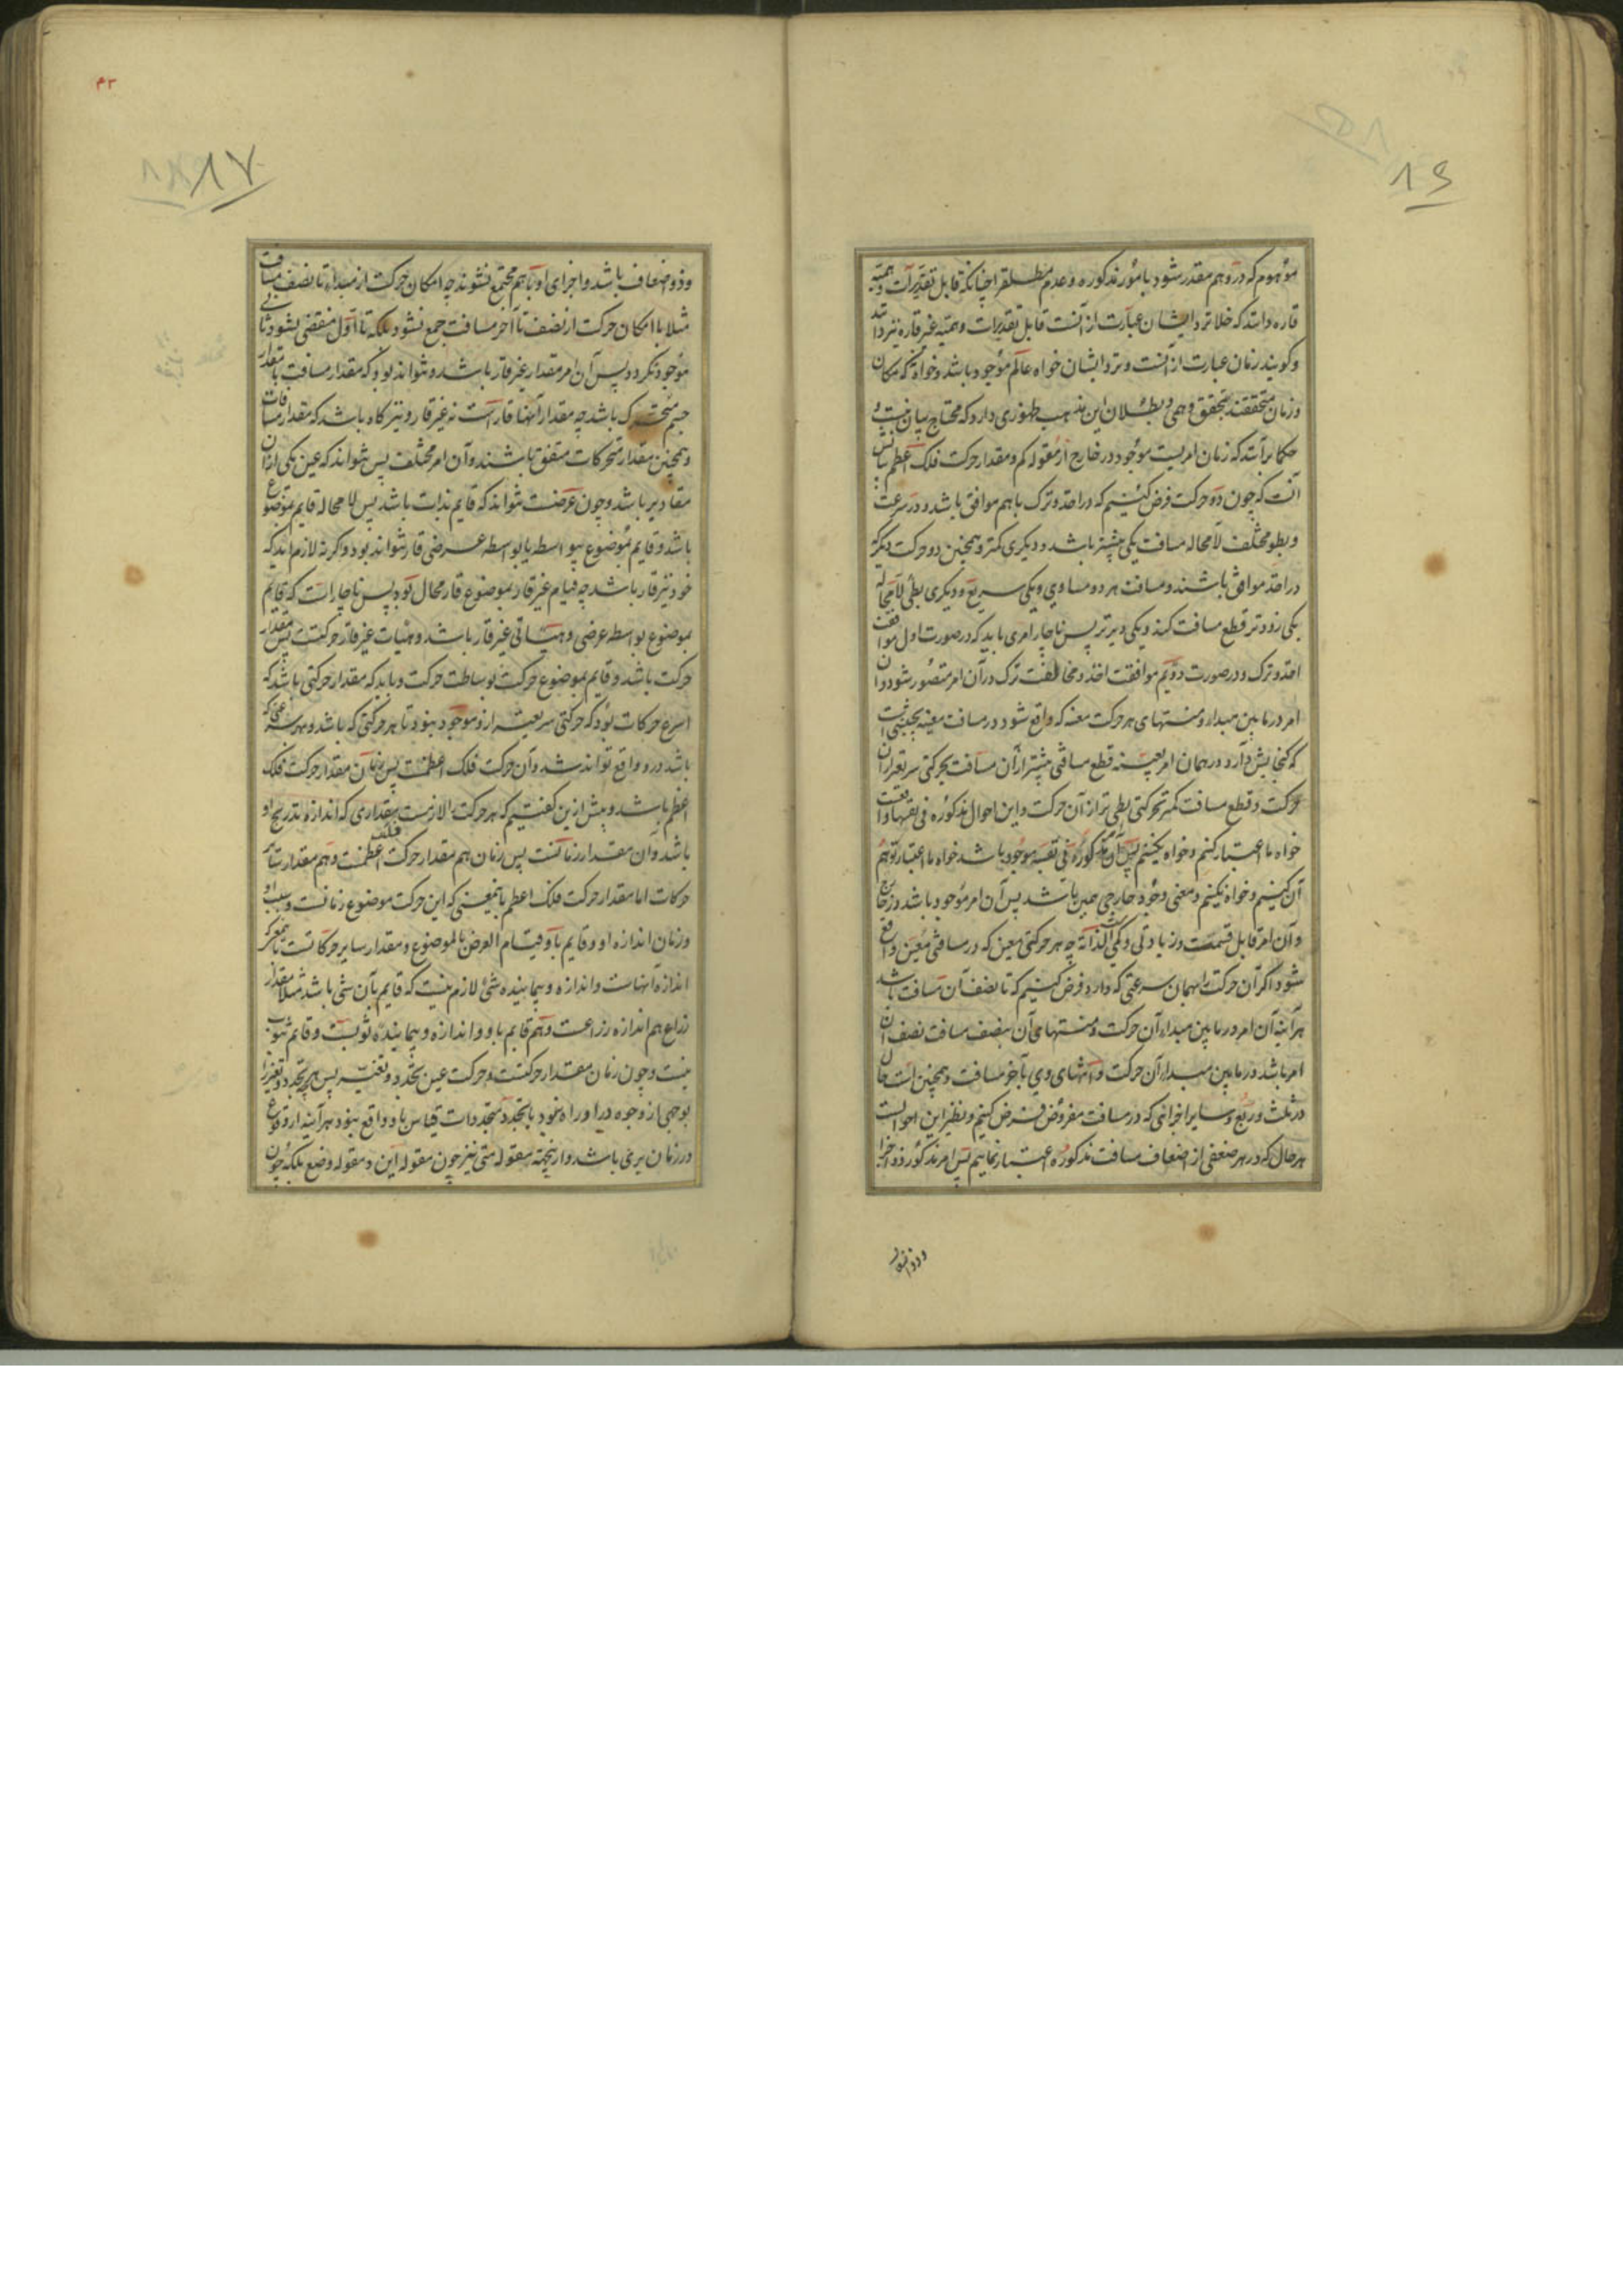 ۸۶
موهوم که در وهم مقدر شود بامور مذکوره و عدم مطلق را چنانکه قابل تقدیرات وهمیه
قاره دانند که خلا نزد ایشان عبارت از آنست قابل تقدیرات وهمیه غیر قاره نیز دانند
و کویند زمان عبارت از آنست و نزد ایشان خواه عالم موجود باشد و خواه نه مکان
و زمان متحققند بتحقق وهمی و بطلان این مذهب ظهوری دارد که محتاج ببیان نیست و
حکما برآنند که زمان امریست موجود در خارج از مقوله کم و مقدار حرکت فلک اعظم بیانش
آنست که چون دو حرکت فرض کنیم که در اخذ و ترک باهم موافق باشد و در سرعت
و بطو مختلف لا محاله مسافت یکی بیشتر باشد و دیکری کمتر و همچنین دو حرکت دیکر که
در اخذ موافق باشند و مسافت هر دو مساوی و یکی سریع و دیکری بطی لا محاله
یکی زودتر قطع مسافت کند و یکی دیرتر پس ناچار امری باید که در صورت اول موافقت
اخذ و ترک و در صورت دویم موافقت اخذ و مخالفت ترک در آن امر متصور شود و آن
امر در ما بین مبداء و منتهای هر حرکت معینه که واقع شود در مسافت معینه بحیثیتی است
که کنجایش دارد در همان امر بعینه قطع مسافتی بیشتر از آن مسافت بحرکتی سریعتر از آن
حرکت و قطع مسافت کمتر بحرکتی بطی تر از آن حرکت و این احوال مذکوره فی نفسها واقعست
خواه ما اعتبار کنیم و خواه نکنیم پس آن امر مذکوره فی نفسه موجود باشد خواه ما اعتبار توهم
آن کنیم و خواه نکنیم و معنی وجود خارجی همین باشد پس آن امر موجود باشد در خارج
و آن امر قابل قسمت و زیادتی و کمی است لذاته چه هر حرکتی معین که در مسافتی معین واقع
شود اکر آن حرکت را بهمان سرعتی که دارد فرض کنیم که تا نصف آن مسافت باشد
هرآینه آن امر در ما بین مبداء آن حرکت و منتهای آن بنصف مسافت نصف آن
امر باشد در ما بین مبداء آن حرکت و انتهای وی بآخر مسافت و همچنین است حال
در ثلث و ربع و سایر اجزائی که در مسافت مفروض فرض کنیم و نظیر این احوالست
هر حال که در هر ضعفی از اضعاف مسافت مذکوره اعتبار نماییم پس امر مذکور ذو اجزا
و ذو اضعاف
۴۳
۸۷
و ذو اضعاف باشد و اجزای او باهم مجتمع نشوند چه امکان حرکت از مبداء تا نصف مسافت
مثلا با امکان حرکت از نصف تا آخر مسافت جمع نشود بلکه تا اول منقضی نشود ثانی
موجود نکردد پس آن امر مقدار غیر قار باشد و نتواند بود که مقدار مسافت یا مقدار
جسم متحرک باشد چه مقدار آنها قار است نه غیر قار و نیز کاه باشد که مقدار مسافات
و همچنین مقدار متحرکات متفق باشند و آن امر مختلف پس نتواند که عین یکی از آن
مقادیر باشد و چون عرضست نتواند که قایم بذات باشد پس لا محاله قایم بموضوع
باشد و قایم بموضوع بیواسطه یا بواسطه عرضی قار نتواند بود و اکر نه لازم آید که
خود نیز قار باشد چه قیام غیر قار بموضوع قار محال بود پس ناچار است که قایم
بموضوع بواسطه عرضی و هیئاتی غیر قار باشد و هیئات غیر قار حرکتست پس مقدار
حرکت باشد و قایم بموضوع حرکت بوساطت حرکت و باید که مقدار حرکتی باشد که
اسرع حرکات بود که حرکتی سریعتر ازو موجود نبود تا هر حرکتی که باشد و بهر سرعتی که
باشد درو واقع تواند شد و آن حرکت فلک اعظمست پس زمان مقدار حرکت فلک
اعظم باشد و پیش ازین کفتیم که هر حرکت را لازمست مقداری که اندازه تدریج او
باشد و آن مقدار زمانست پس زمان هم مقدار حرکت فلک اعظمست و هم مقدار سایر
حرکات اما مقدار حرکت فلک اعظم بمعنی که این حرکت موضوع زمانست و سبب او
و زمان اندازه او و قایم باو قیام العرض بالموضوع و مقدار سایر حرکاتست بمعنی که
اندازه آنهاست و اندازه و پیماینده شئ لازم نیست که قایم بآن شئ باشد مثلا مقدار
ذراع هم اندازه ذراعست و هم قایم باو و اندازه و پیماینده ثوبست و قایم بثوب
نیست و چون زمان مقدار حرکتست و حرکت عین تجدد و تغیر پس هر چه تجدد و تغیر را
بوجهی از وجوه در او راه نبود یا تجدد متجددات قیاس باو واقع نبود هرآینه از وقوع
در زمان بری باشد و از نیجهته مقوله متی نیز چون مقوله این و مقوله وضع بلکه چون